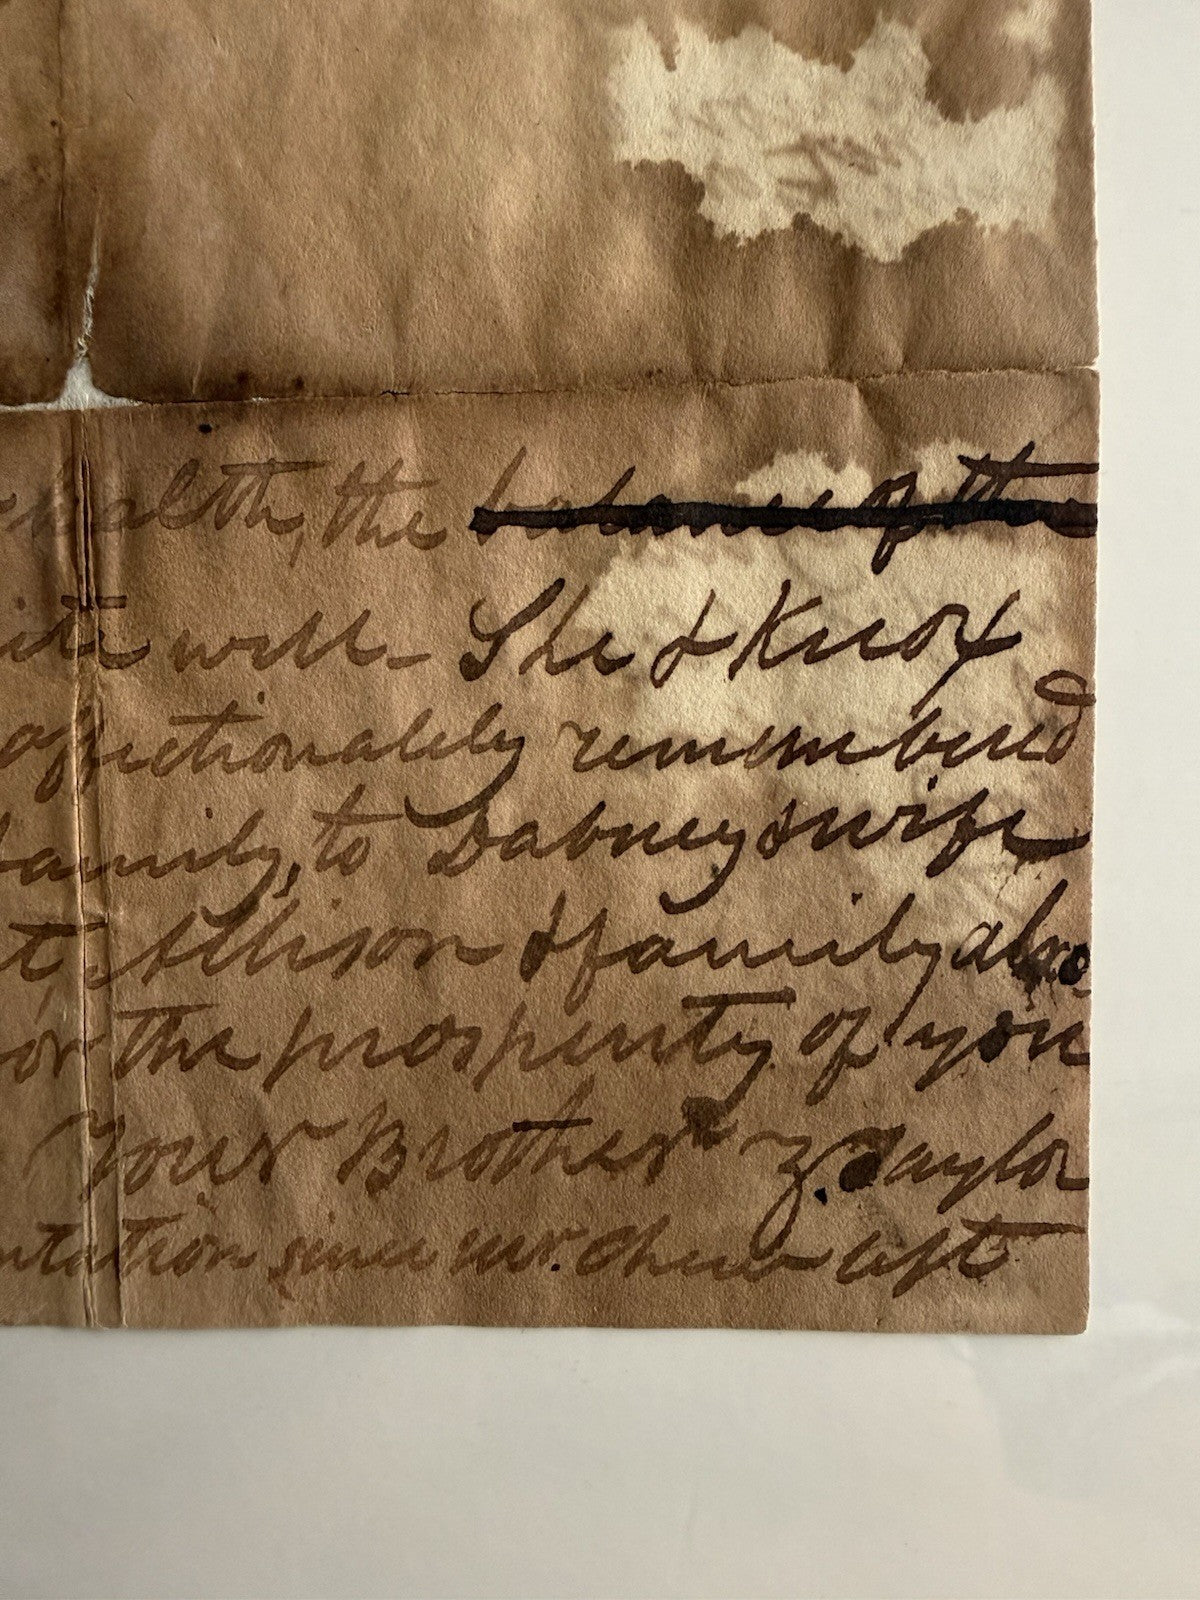 health, the balance of the
will - She & Knox
affectionalely remembered
family, to Dabneys wife
Allison & family also
for the prosperity of you
Your Brother Z. Taylor
since mr. Chew left